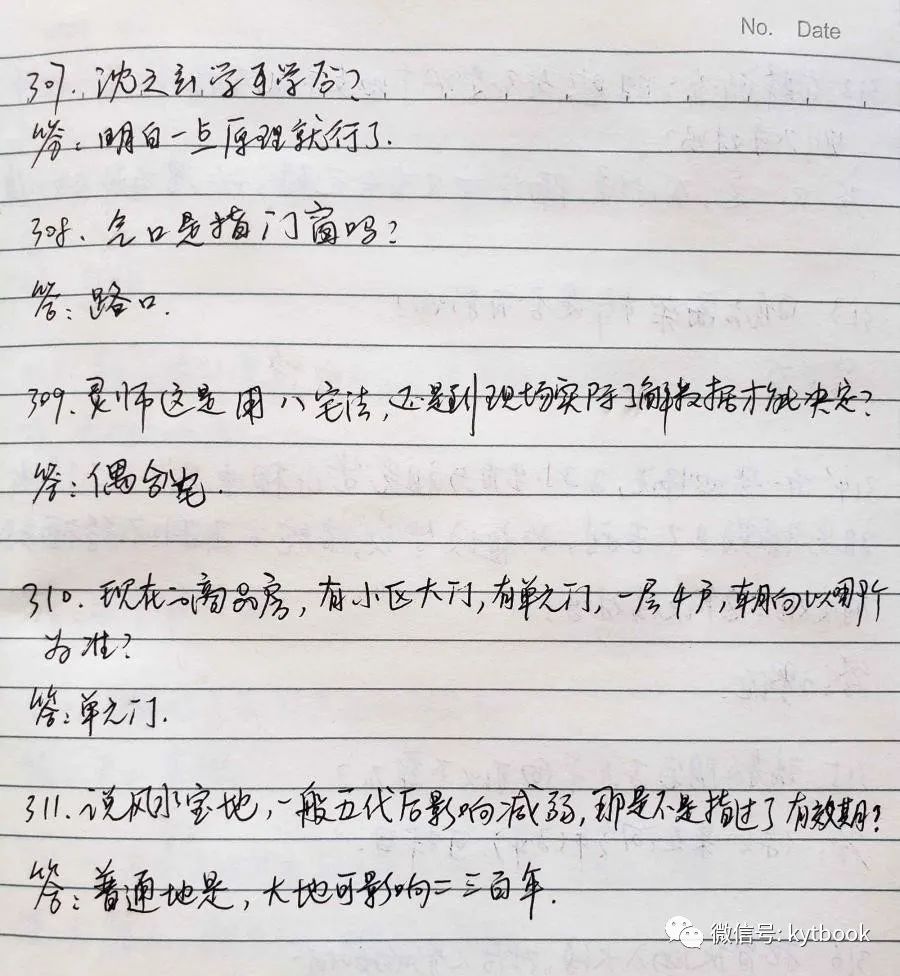 No. Date
307. 沈之玄学可学否?
答: 明白一点原理就行了.
308. 气口是指门窗吗?
答: 路口.
309. 灵师这是用八宅法, 还是到现场实际了解数据才能决定?
答: 偶合宅.
310. 现在的商品房, 有小区大门, 有单元门, 一层4户, 朝向以哪个
为准?
答: 单元门.
311. 说风水宝地, 一般五代后影响减弱, 那是不是指过了有效期?
答: 普通地是, 大地可影响二三百年.
微信号: kytbook